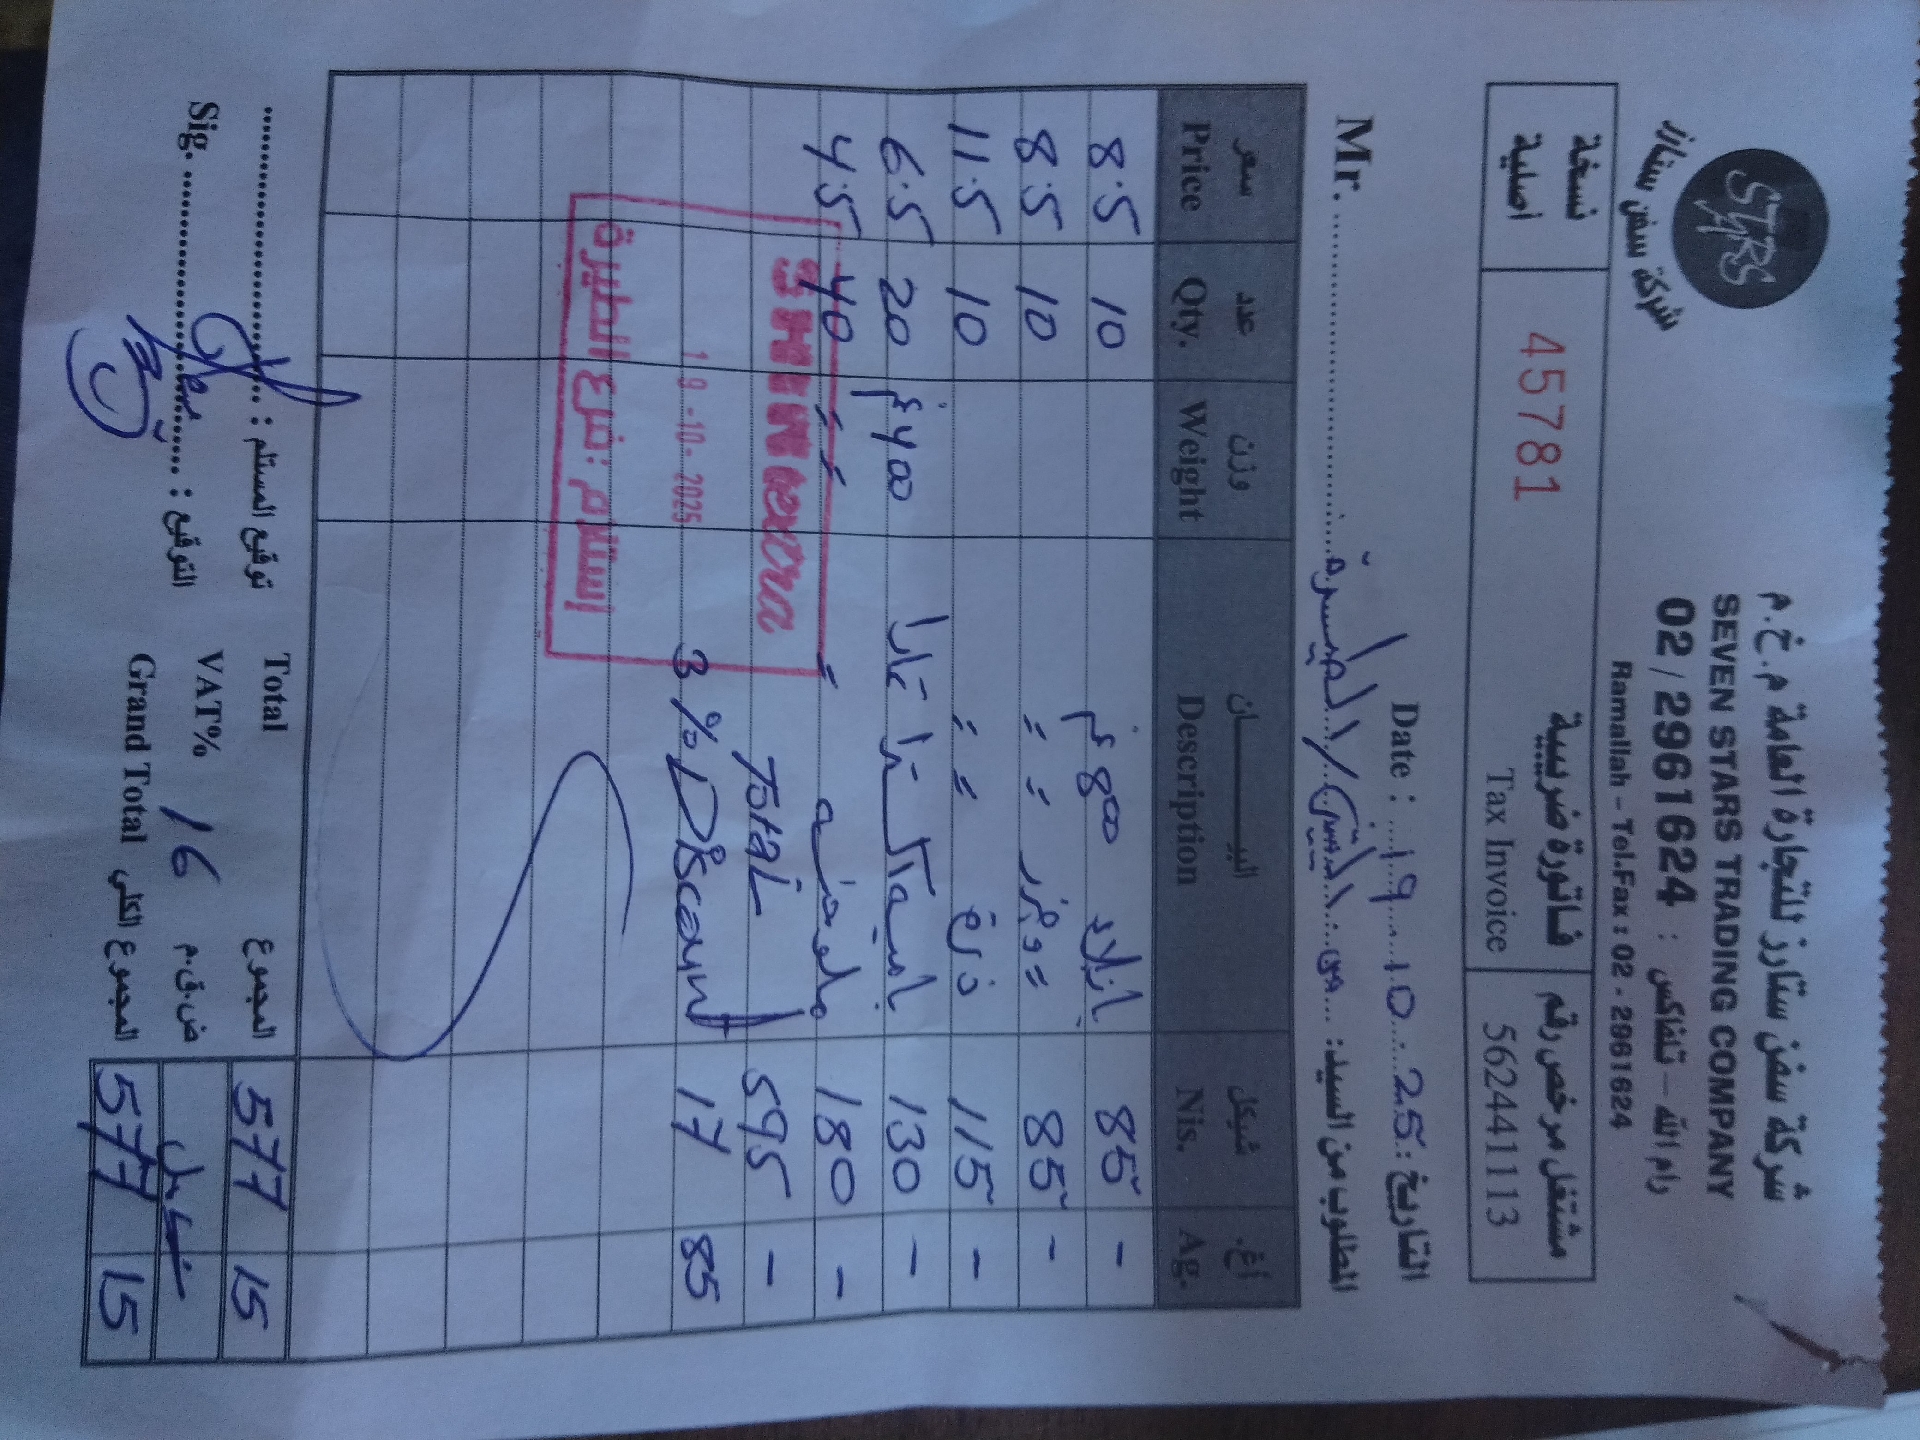 شركة سفن ستارز للتجارة العامة م.خ.م
SEVEN STARS TRADING COMPANY
02 / 2961624 : رام الله - تلفاكس
Ramallah - Tel.Fax : 02 - 2961624
STARS
شركة سفن ستارز
نسخة اصلية
45781
فاتورة ضريبية
Tax Invoice
مشتغل مرخص رقم
562441113
Date : 19.10.25 : التاريخ
Mr. المطلوب من السيد:
سعر عدد وزن البيــــــان شيكل أغ.
Price Qty. Weight Description Nis. Ag.
8.5 10 800 غم 85 -
8.5 10 = = 85 -
11.5 10 = = 115 -
6.5 20 400 غم 130 -
4.5 40 = = = 180 -
Total 595 -
3 % Discount 17 85
SHINI extra
19 -10- 2025
إستلام : فرع الطيرة
توقيع المستلم :
Sig. التوقيع :
Total المجموع 577 15
VAT% 16 ض.ق.م شامل
Grand Total المجموع الكلي 577 15